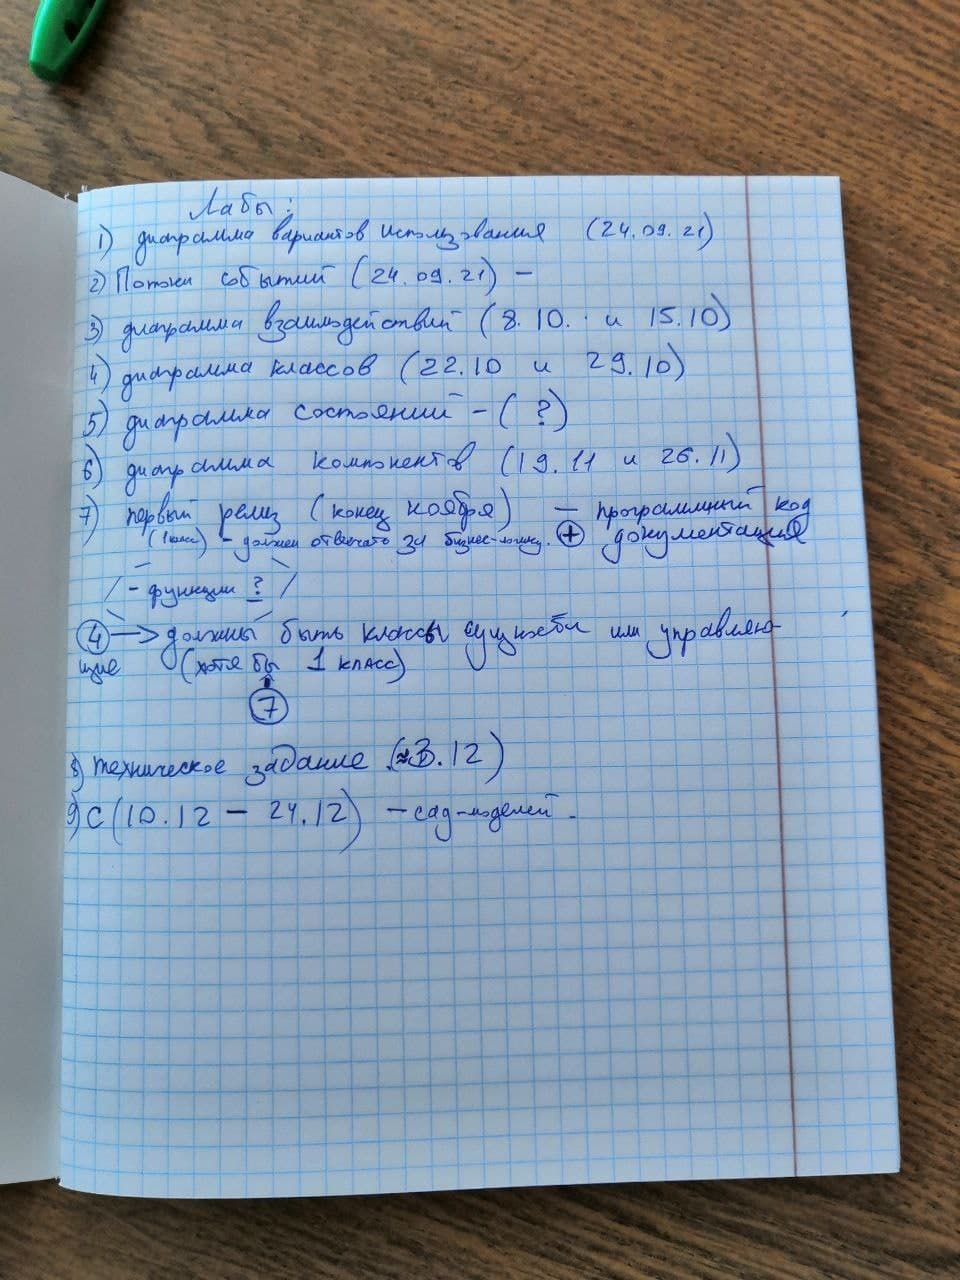 Лабы:
1) диаграмма вариантов использования (24.09.21)
2) Потоки событий (24.09.21) –
3) диаграмма взаимодействий (8.10. и 15.10)
4) диаграмма классов (22.10 и 29.10)
5) диаграмма состояний – (?)
6) диаграмма компонентов (19.11 и 26.11)
7) первый релиз (конец ноября) — программный код
(1 класс) – должен отвечать за бизнес-логику. + документация
- функции ?
4 —> должны быть классы сущности или управляю-
щие (хотя бы 1 класс)
7
8) техническое задание (≈3.12)
9) С (10.12 – 24.12) – сад-моделей.